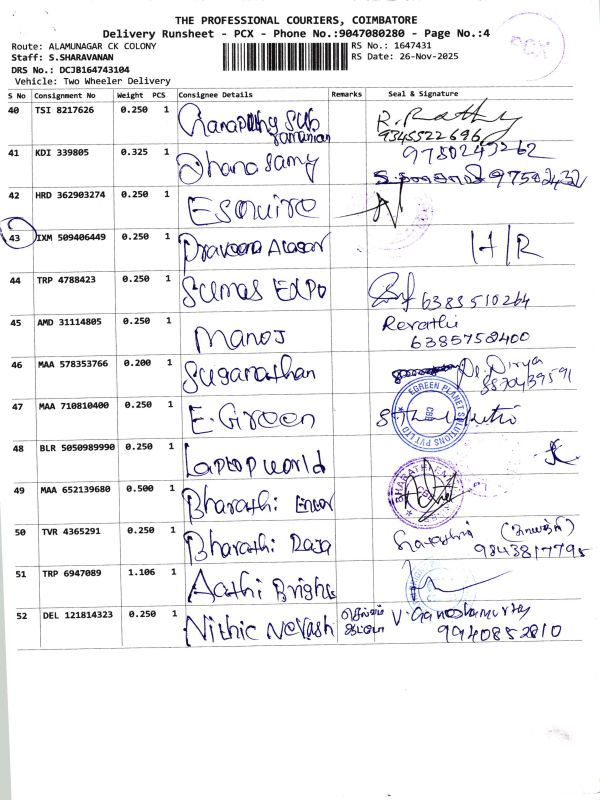 THE PROFESSIONAL COURIERS, COIMBATORE
Delivery Runsheet - PCX - Phone No.:9047080280 - Page No.:4
PCX
Route: ALAMUNAGAR CK COLONY
RS No.: 1647431
Staff: S.SHARAVANAN
RS Date: 26-Nov-2025
DRS No.: DCJB164743104
Vehicle: Two Wheeler Delivery
S No Consignment No Weight PCS Consignee Details Remarks Seal & Signature
40 TSI 8217626 0.250 1 Ganapathy Sub R. Rathy
ramanian 9345522696
41 KDI 339805 0.325 1 Dhanasamy 9750243262
42 HRD 362903274 0.250 1 Esquire
43 IXM 509406449 0.250 1 Praveena Alagar H/R
44 TRP 4788423 0.250 1 Sumas Expo 6383510264
45 AMD 31114805 0.250 1 Manoj Revathi
6385758400
46 MAA 578353766 0.200 1 Suganathan
47 MAA 710810400 0.250 1 E-Green EGREEN PLANET SOLUTIONS PVT LTD CBE
48 BLR 5050989990 0.250 1 Laptop world
49 MAA 652139680 0.500 1 Bharathi Enter BHARATHI ENT
50 TVR 4365291 0.250 1 Bharathi Raja
9843817795
51 TRP 6947089 1.106 1 Aathi Brights
52 DEL 121814323 0.250 1 Nithic Nevash V. Ganeshamurthy
9940852810